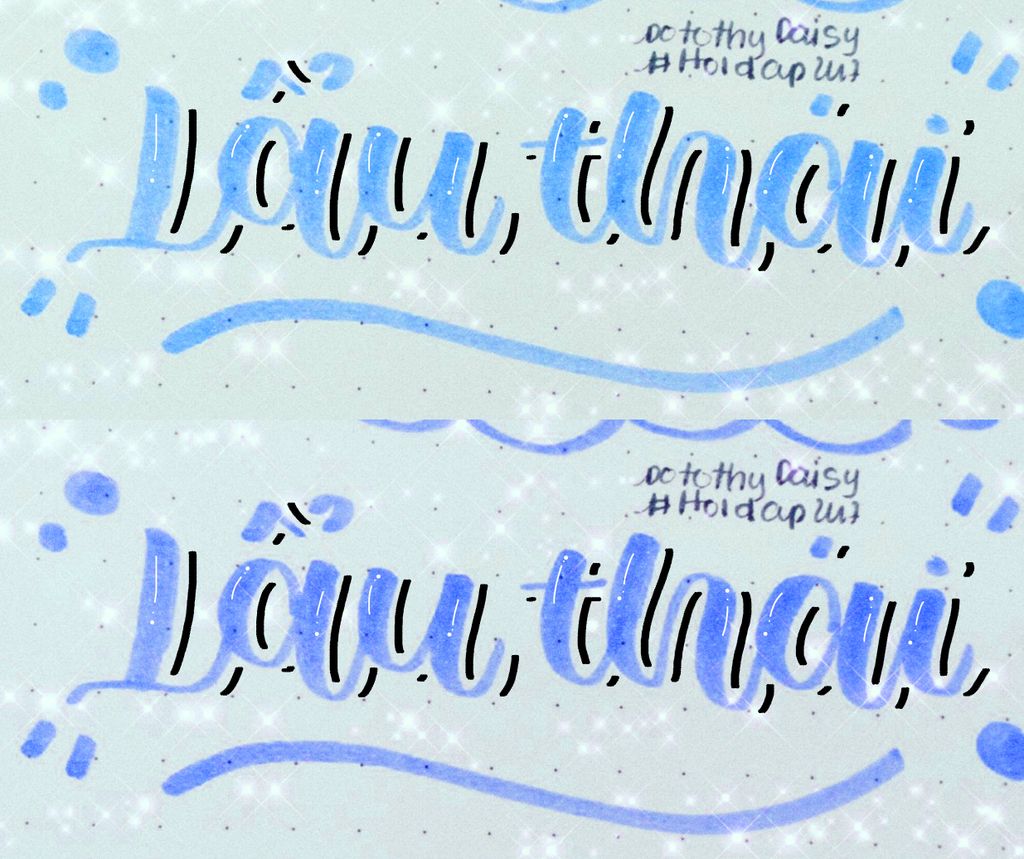 Dotothy Daisy
#Hoidap247
Lẩu thái
Dotothy Daisy
#Hoidap247
Lẩu thái